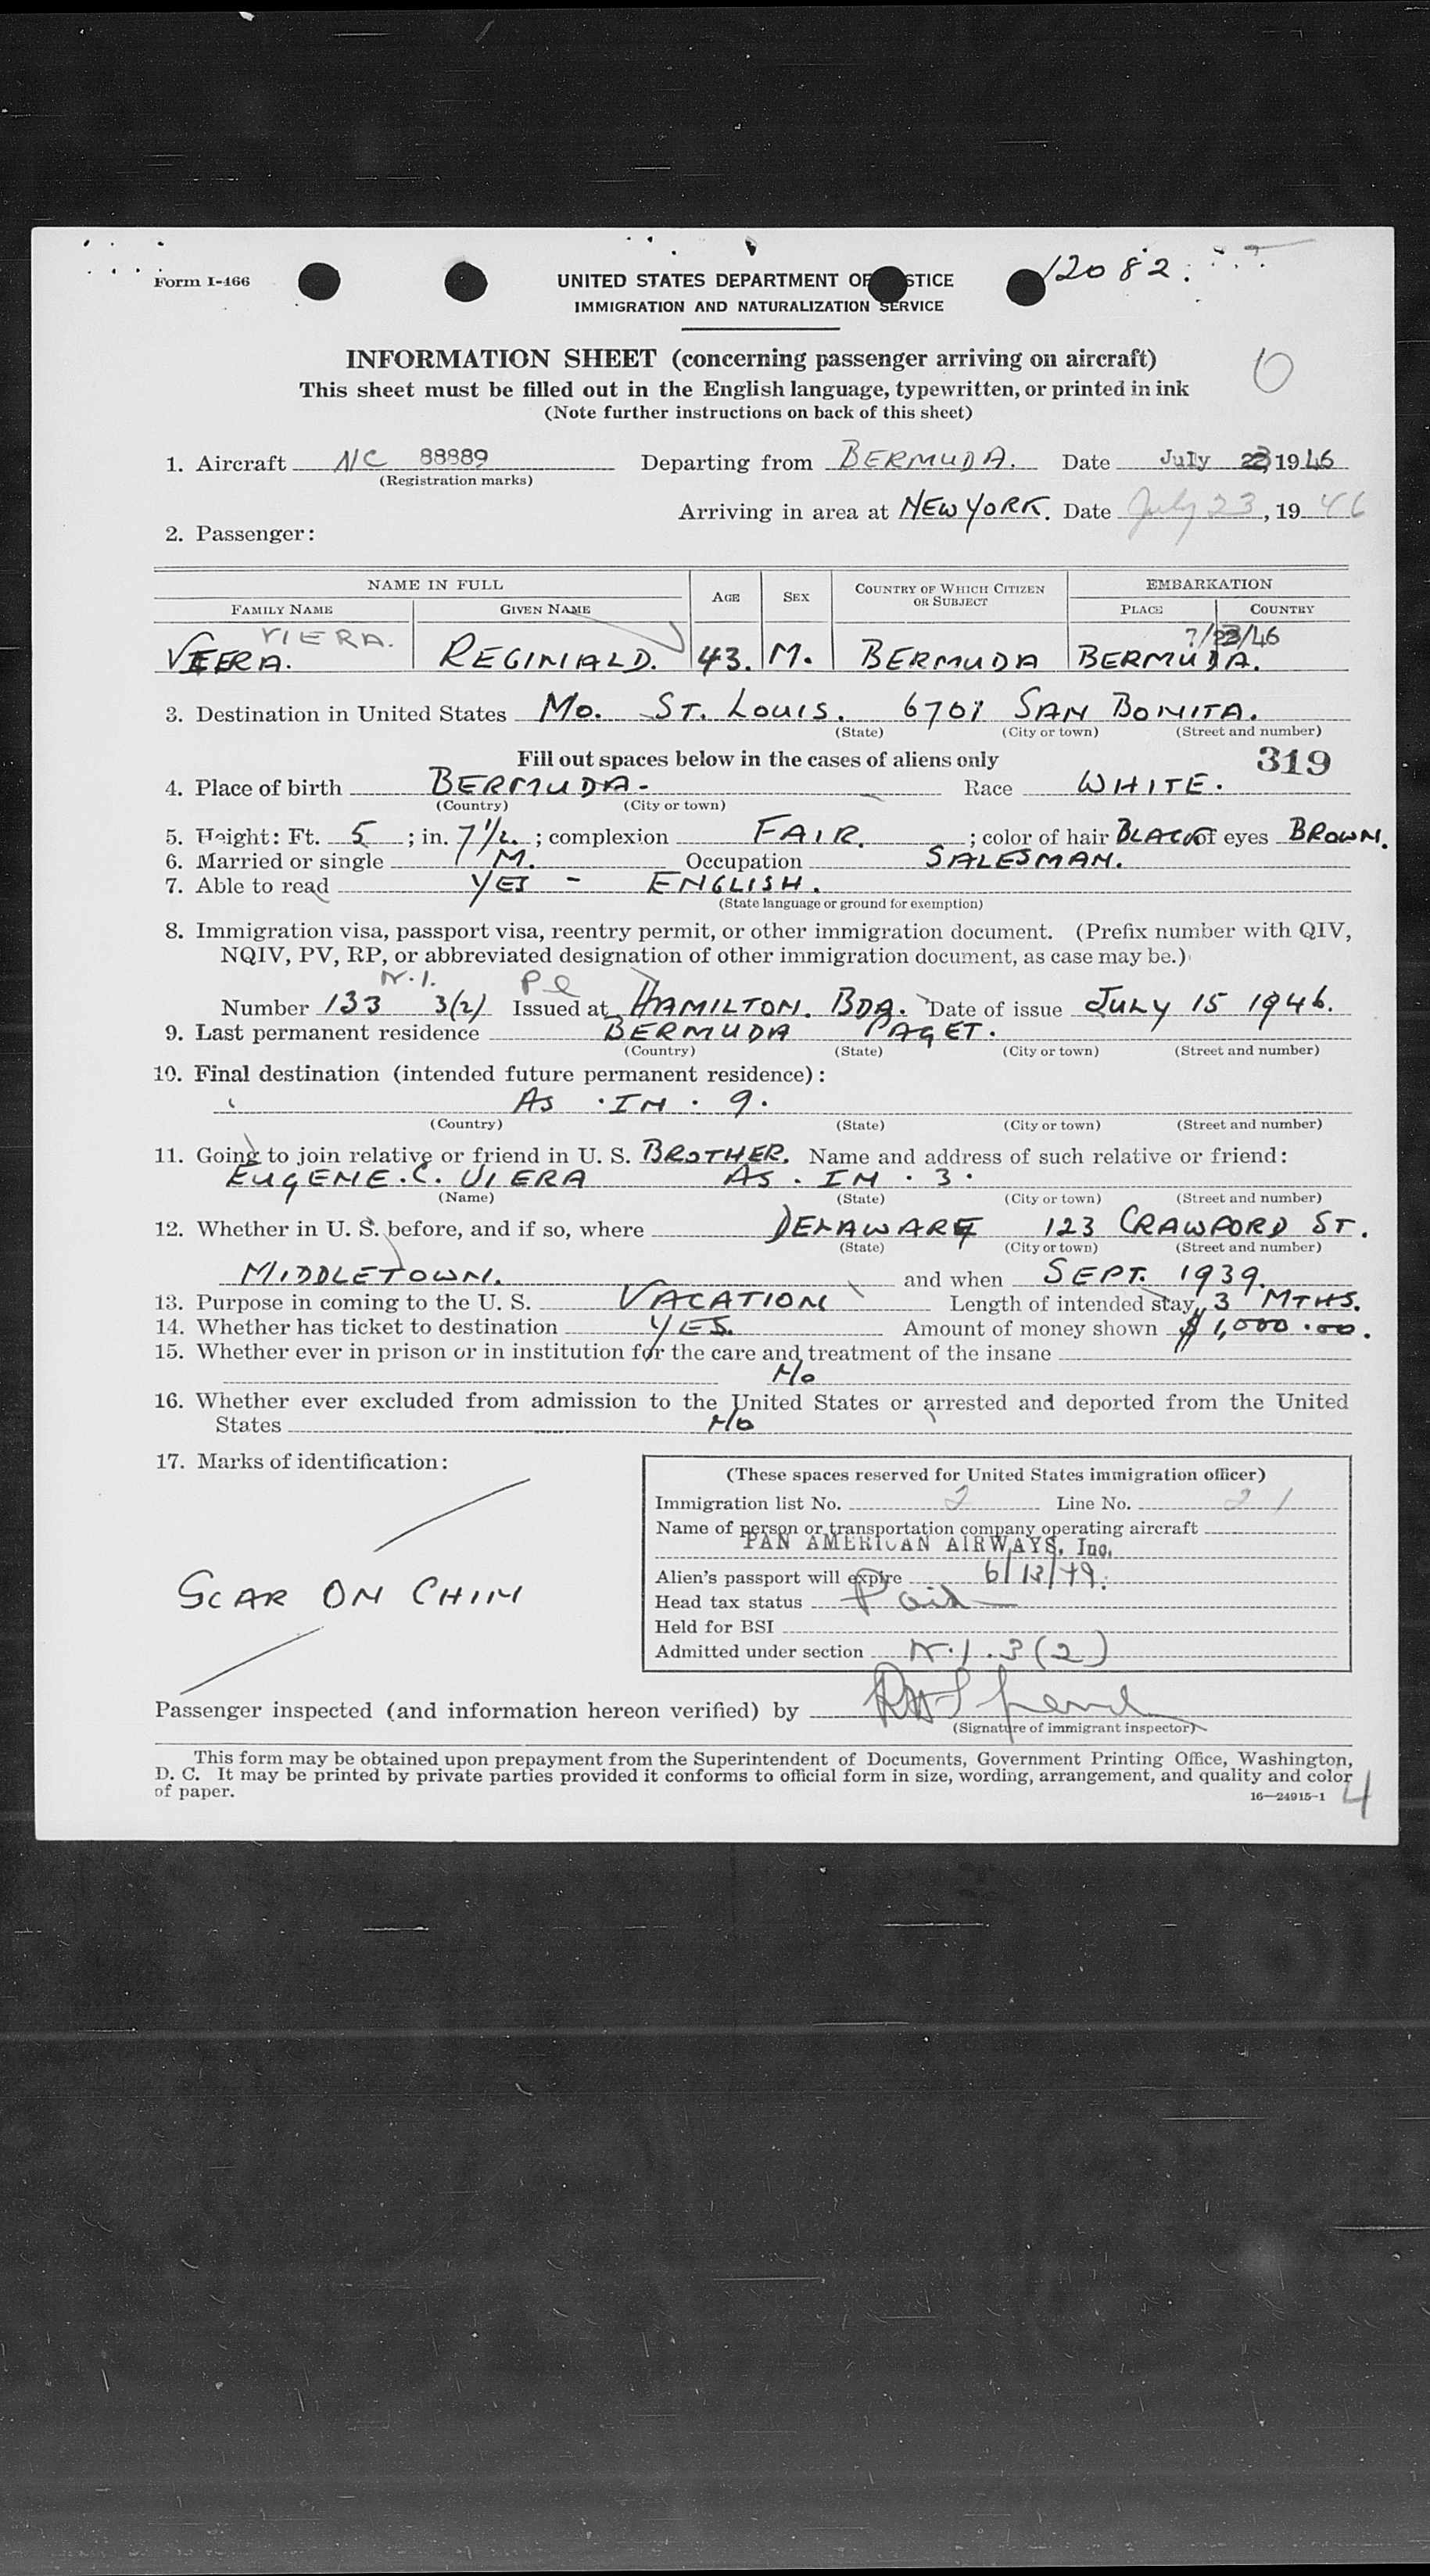 Form I-466
UNITED STATES DEPARTMENT OF STICE
12082.
IMMIGRATION AND NATURALIZATION SERVICE
INFORMATION SHEET (concerning passenger arriving on aircraft)
This sheet must be filled out in the English language, typewritten, or printed in ink
(Note further instructions on back of this sheet)
1. Aircraft NC 88889 Departing from BERMUDA. Date July 23, 1946
(Registration marks)
Arriving in area at NEW YORK. Date July 23, 1946
2. Passenger:
NAME IN FULL AGE SEX COUNTRY OF WHICH CITIZEN OR SUBJECT EMBARKATION
FAMILY NAME GIVEN NAME PLACE COUNTRY
VIERA. 7/23/46
VEERA. REGINALD. 43. M. BERMUDA BERMUDA.
3. Destination in United States MO. ST. LOUIS. 6701 SAN BONITA.
(State) (City or town) (Street and number)
Fill out spaces below in the cases of aliens only 319
4. Place of birth BERMUDA- Race WHITE.
(Country) (City or town)
5. Height: Ft. 5; in. 7 1/2; complexion FAIR.; color of hair BLACK of eyes BROWN.
6. Married or single M. Occupation SALESMAN.
7. Able to read YES - ENGLISH.
(State language or ground for exemption)
8. Immigration visa, passport visa, reentry permit, or other immigration document. (Prefix number with QIV,
NQIV, PV, RP, or abbreviated designation of other immigration document, as case may be.)
N.I.
Number 133 3(2) Issued at HAMILTON. BDA. Date of issue JULY 15 1946.
9. Last permanent residence BERMUDA PAGET.
(Country) (State) (City or town) (Street and number)
10. Final destination (intended future permanent residence):
AS . IN . 9.
(Country) (State) (City or town) (Street and number)
11. Going to join relative or friend in U. S. BROTHER. Name and address of such relative or friend:
EUGENE. C. VIERA AS . IN . 3.
(Name) (State) (City or town) (Street and number)
12. Whether in U. S. before, and if so, where DELAWARE 123 CRAWFORD ST.
(State) (City or town) (Street and number)
MIDDLETOWN. and when SEPT. 1939.
13. Purpose in coming to the U. S. VACATION Length of intended stay 3 MTHS.
14. Whether has ticket to destination YES. Amount of money shown $1,000.00.
15. Whether ever in prison or in institution for the care and treatment of the insane
NO
16. Whether ever excluded from admission to the United States or arrested and deported from the United
States NO
17. Marks of identification:
SCAR ON CHIN
(These spaces reserved for United States immigration officer)
Immigration list No. 2 Line No. 21
Name of person or transportation company operating aircraft
PAN AMERICAN AIRWAYS, Inc.
Alien's passport will expire 6/13/49.
Head tax status Paid
Held for BSI
Admitted under section N.I. 3(2)
Passenger inspected (and information hereon verified) by
(Signature of immigrant inspector)
This form may be obtained upon prepayment from the Superintendent of Documents, Government Printing Office, Washington,
D. C. It may be printed by private parties provided it conforms to official form in size, wording, arrangement, and quality and color
of paper.
16—24915-1 4